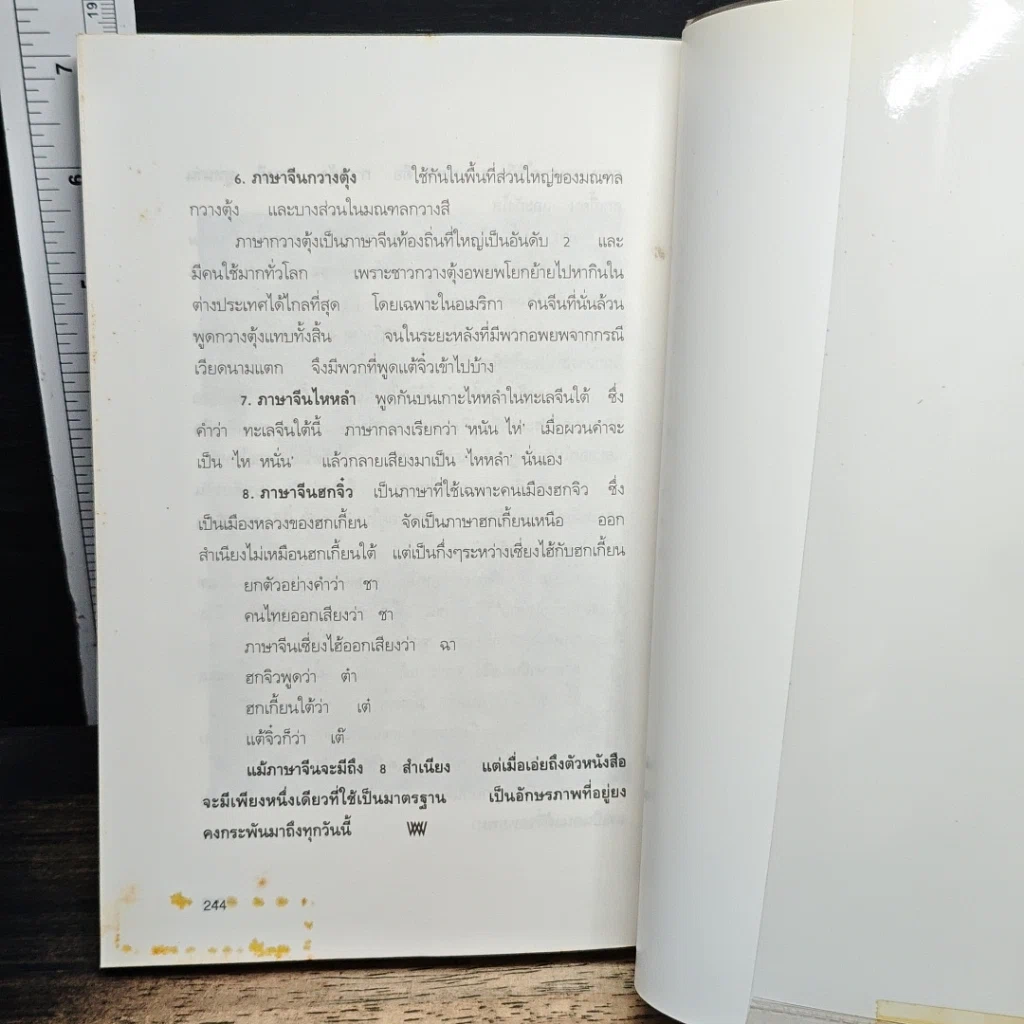 6. ภาษาจีนกวางตุ้ง ใช้กันในพื้นที่ส่วนใหญ่ของมณฑล
กวางตุ้ง และบางส่วนในมณฑลกวางสี
ภาษากวางตุ้งเป็นภาษาจีนท้องถิ่นที่ใหญ่เป็นอันดับ 2 และ
มีคนใช้มากทั่วโลก เพราะชาวกวางตุ้งอพยพโยกย้ายไปหากินใน
ต่างประเทศได้ไกลที่สุด โดยเฉพาะในอเมริกา คนจีนที่นั่นล้วน
พูดกวางตุ้งแทบทั้งสิ้น จนในระยะหลังที่มีพวกอพยพจากกรณี
เวียดนามแตก จึงมีพวกที่พูดแต้จิ๋วเข้าไปบ้าง
7. ภาษาจีนไหหลำ พูดกันบนเกาะไหหลำในทะเลจีนใต้ ซึ่ง
คำว่า ทะเลจีนใต้นี้ ภาษากลางเรียกว่า 'หนัน ไห่' เมื่อผวนคำจะ
เป็น 'ไห หนั่น' แล้วกลายเสียงมาเป็น 'ไหหลำ' นั่นเอง
8. ภาษาจีนฮกจิ๋ว เป็นภาษาที่ใช้เฉพาะคนเมืองฮกจิว ซึ่ง
เป็นเมืองหลวงของฮกเกี้ยน จัดเป็นภาษาฮกเกี้ยนเหนือ ออก
สำเนียงไม่เหมือนฮกเกี้ยนใต้ แต่เป็นกึ่งๆระหว่างเซี่ยงไฮ้กับฮกเกี้ยน
ยกตัวอย่างคำว่า ชา
คนไทยออกเสียงว่า ชา
ภาษาจีนเซี่ยงไฮ้ออกเสียงว่า ฉา
ฮกจิวพูดว่า ต๋า
ฮกเกี้ยนใต้ว่า เต๋
แต้จิ๋วก็ว่า เต๊
แม้ภาษาจีนจะมีถึง 8 สำเนียง แต่เมื่อเอ่ยถึงตัวหนังสือ
จะมีเพียงหนึ่งเดียวที่ใช้เป็นมาตรฐาน เป็นอักษรภาพที่อยู่ยง
คงกระพันมาถึงทุกวันนี้
244
7
6
5
19